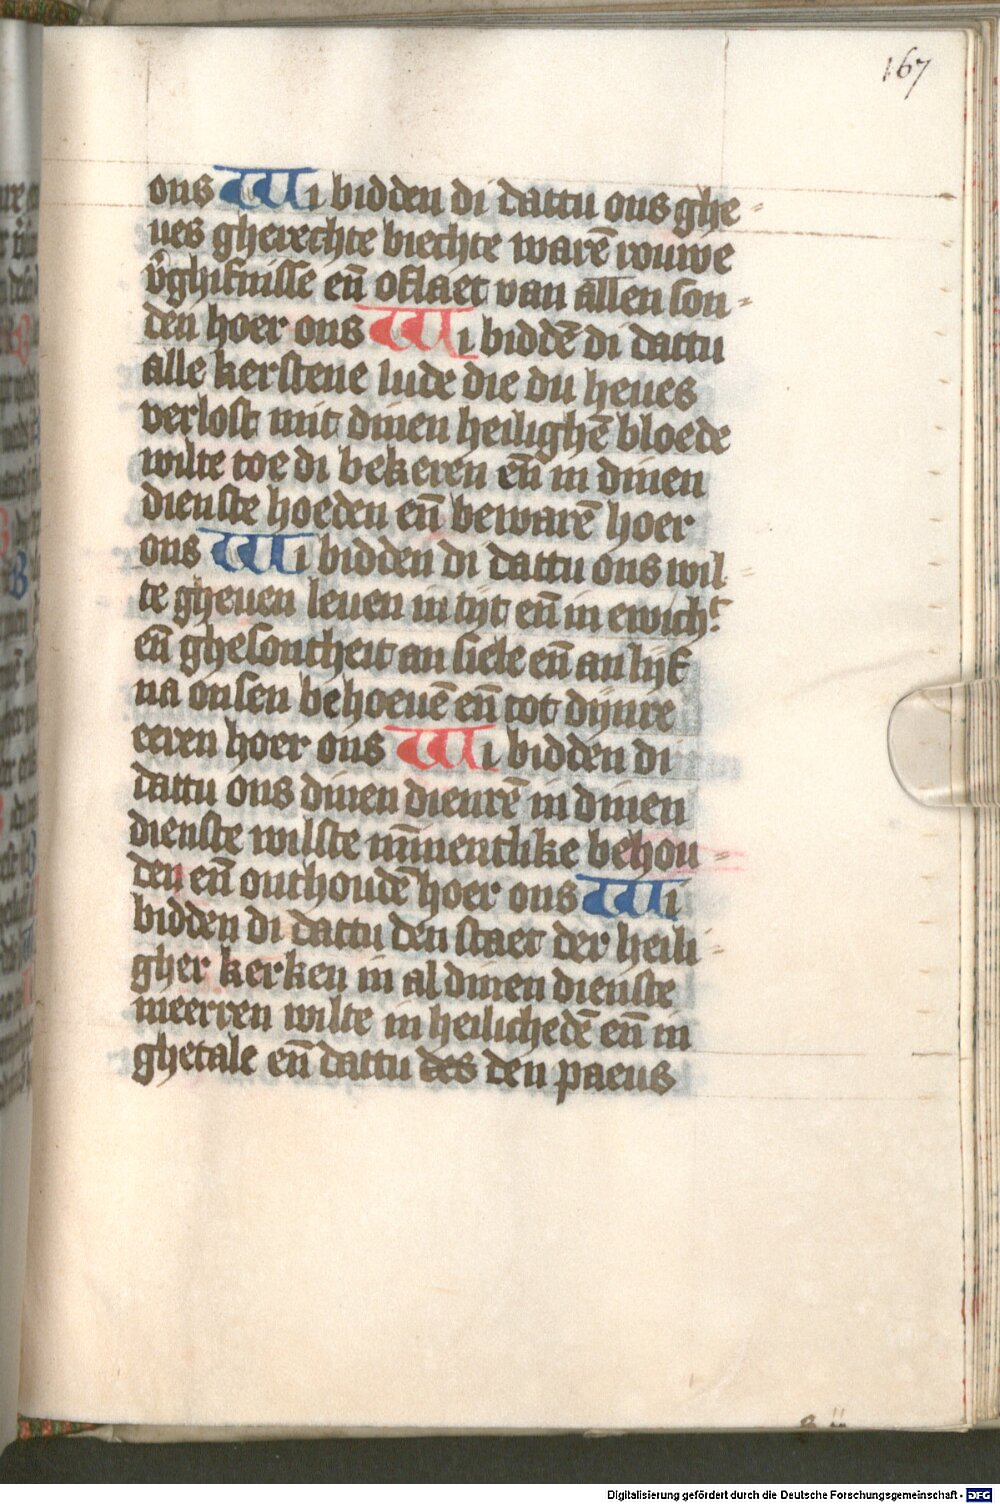 167
ons Wi bidden di dattu ons ghe
ues gherechte biechte warē rouwe
v̄ghifnisse eñ oflaet van allen son
den hoer ons Wi biddē di dattu
alle kerstene lude die du heues
verlost mit dinen heilighē bloede
wilte toe di bekeren eñ in dinen
dienste hoeden eñ bewarē hoer
ons Wi bidden di dattu ons wil
te gheuen leuen in tijt eñ in ewichᵗ
eñ ghesontheit an siele eñ an lijf
na onsen behoeuē eñ tot dijnre
eeren hoer ons Wi bidden di
dattu ons dinen dienrē in dinen
dienste wilste mīnentlike behou
den eñ onthoudē hoer ons Wi
bidden di dattu den staet der heili
gher kerken in al dinen dienste
meerren wilte in heilichedē eñ in
ghetale eñ dattu des den paeus
Digitalisierung gefördert durch die Deutsche Forschungsgemeinschaft - DFG